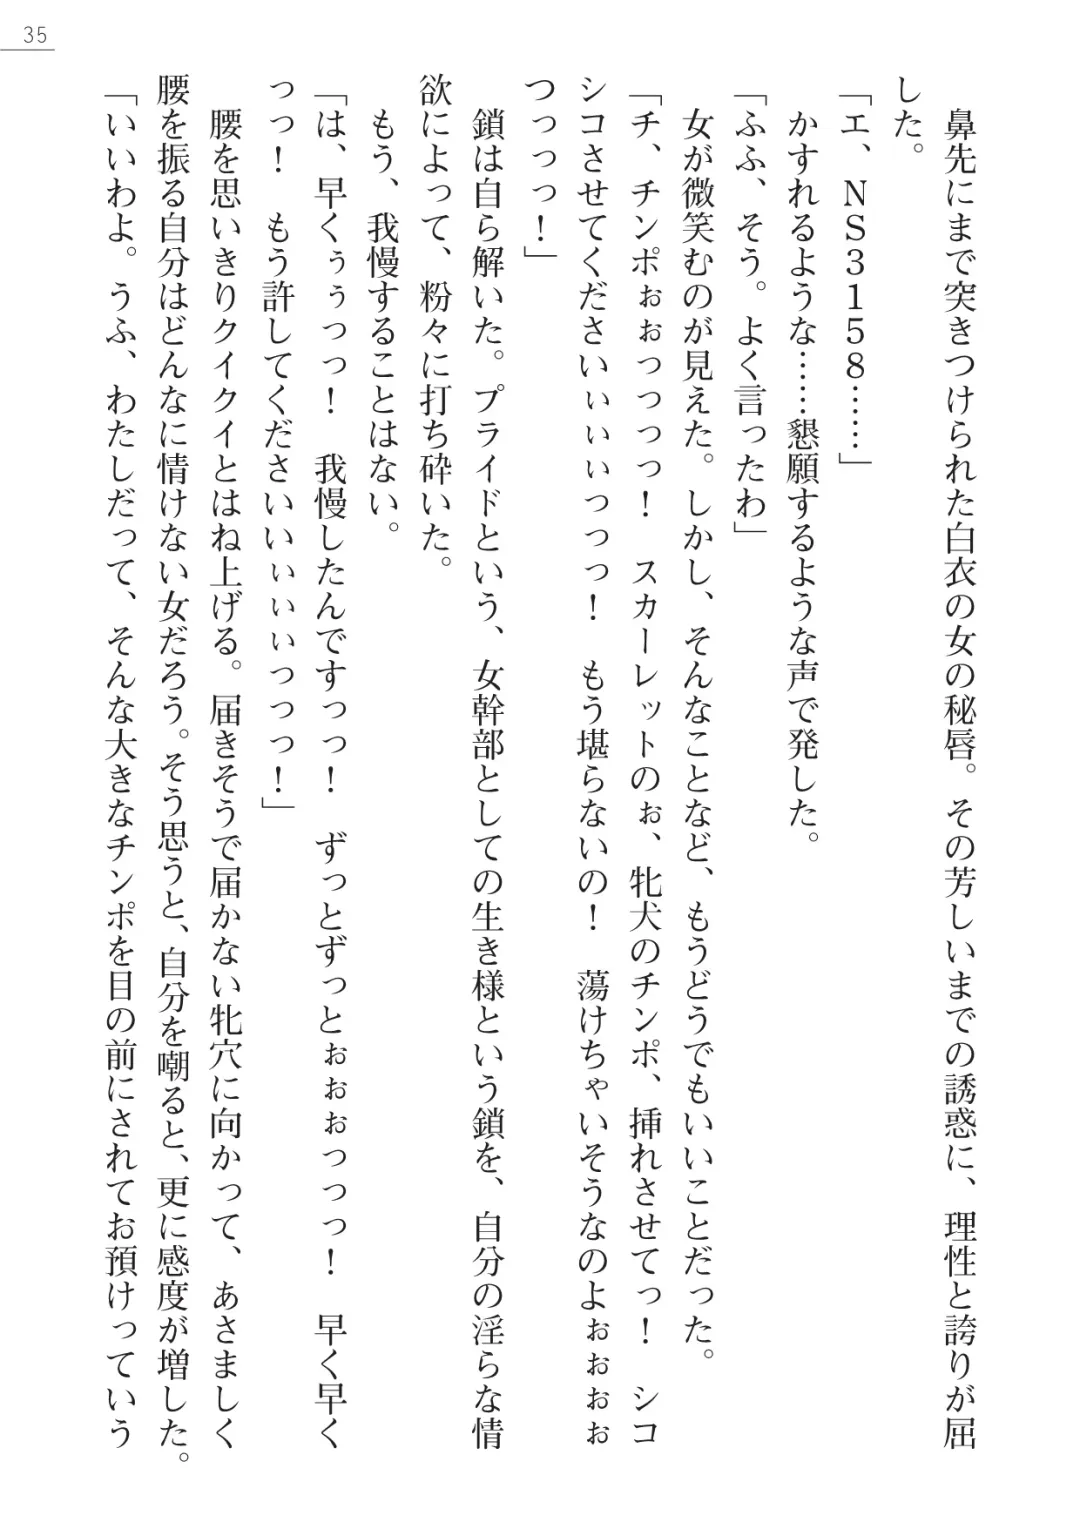 35
　鼻先にまで突きつけられた白衣の女の秘唇。その芳しいまでの誘惑に、理性と誇りが屈
した。
「エ、ＮＳ３１５８……」
　かすれるような……懇願するような声で発した。
「ふふ、そう。よく言ったわ」
　女が微笑むのが見えた。しかし、そんなことなど、もうどうでもいいことだった。
「チ、チンポぉぉっっっっ！　スカーレットのぉ、牝犬のチンポ、挿れさせてっ！　シコ
シコさせてくださいぃぃぃっっっ！　もう堪らないの！　蕩けちゃいそうなのよぉぉぉぉ
つっっっ！」
　鎖は自ら解いた。プライドという、女幹部としての生き様という鎖を、自分の淫らな情
欲によって、粉々に打ち砕いた。
　もう、我慢することはない。
「は、早くぅぅっっ！　我慢したんですっっ！　ずっとずっとぉぉぉっっっ！　早く早く
っっ！　もう許してくださいいぃぃぃっっっ！」
　腰を思いきりクイクイとはね上げる。届きそうで届かない牝穴に向かって、あさましく
腰を振る自分はどんなに情けない女だろう。そう思うと、自分を嘲ると、更に感度が増した。
「いいわよ。うふ、わたしだって、そんな大きなチンポを目の前にされてお預けっていう